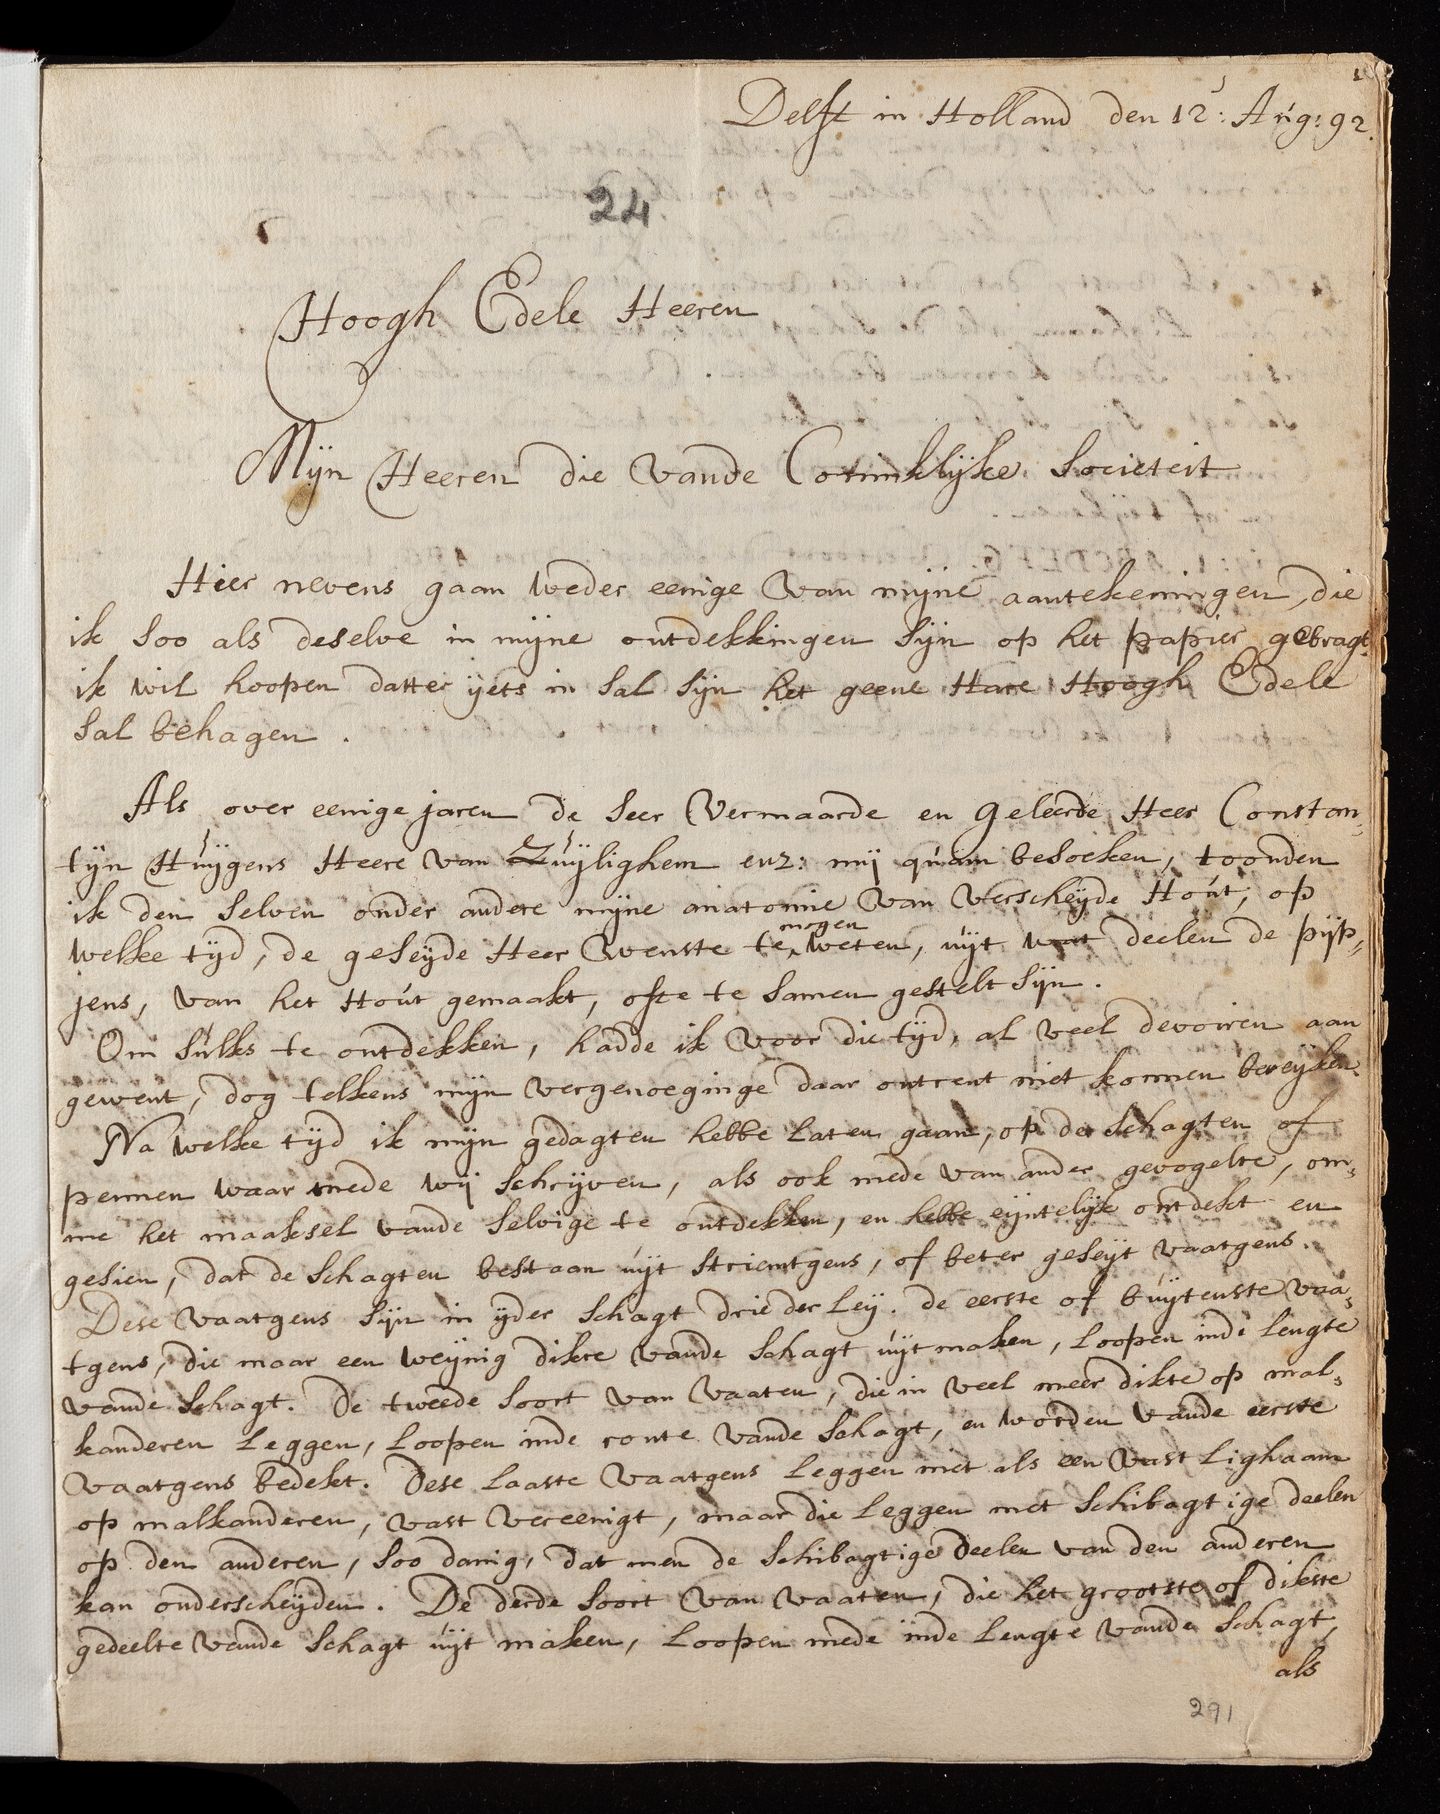 1
Delft in Holland den 12: Aug: 92.
24
Hoogh Edele Heeren
Mijn Heeren die vande Coninklijke Societeit
Hier nevens gaan weder eenige van mijne aantekeningen, die
ik soo als deselve in mijne ontdekkingen sijn op het papier gebragt.
ik wil hoopen datter yets in sal sijn het geene Hare Hoogh Edele
sal behagen.
Als over eenige jaren de seer Vermaarde en geleerde Heer Constan-
tijn Huijgens Heere van Zuijlighem enz: mij quam besoeken, toonden
ik den selven onder andere mijne anatomie van verscheijde Hout, op
mogen
welke tijd, de geseijde Heer wenste te weten, uijt wat deelen de pijp-
jens, van het Hout gemaakt, ofte te samen gestelt sijn.
Om sulks te ontdekken, hadde ik voor die tijd, al veel devoiren aan
gewent, dog telkens mijn vergenoeginge daar ontrent niet konnen bereijken.
Na welke tijd ik mijn gedagten hebbe laten gaan, op de schagten of
pennen waar mede wij schrijven, als ook mede van ander gevogelte, om-
me het maaksel vande selvige te ontdekken, en hebbe eijntelijk ontdekt en
gesien, dat de schagten bestaan uijt striemtgens, of beter geseijt vaatgens.
Dese vaatgens sijn in ijder schagt drie der leij. de eerste of buijtenste vaa-
tgens, die maar een weijnig dikte vande schagt uijtmaken, loopen inde lengte
vande schagt. De tweede soort van vaaten, die in veel meer dikte op mal-
kanderen leggen, loopen inde ronte vande schagt, en worden vande eerste
vaatgens bedekt. Dese laaste vaatgens leggen niet als een vast lighaam
op malkanderen, vast vereenigt, maar die leggen met schibagtige deelen
op den anderen, soo danig, dat men de schibagtige deelen van den anderen
kan onderscheijden. De derde soort van vaaten, die het grootste of dikste
gedeelte vande schagt uijt maken, loopen mede inde lengte vande schagt,
als
291